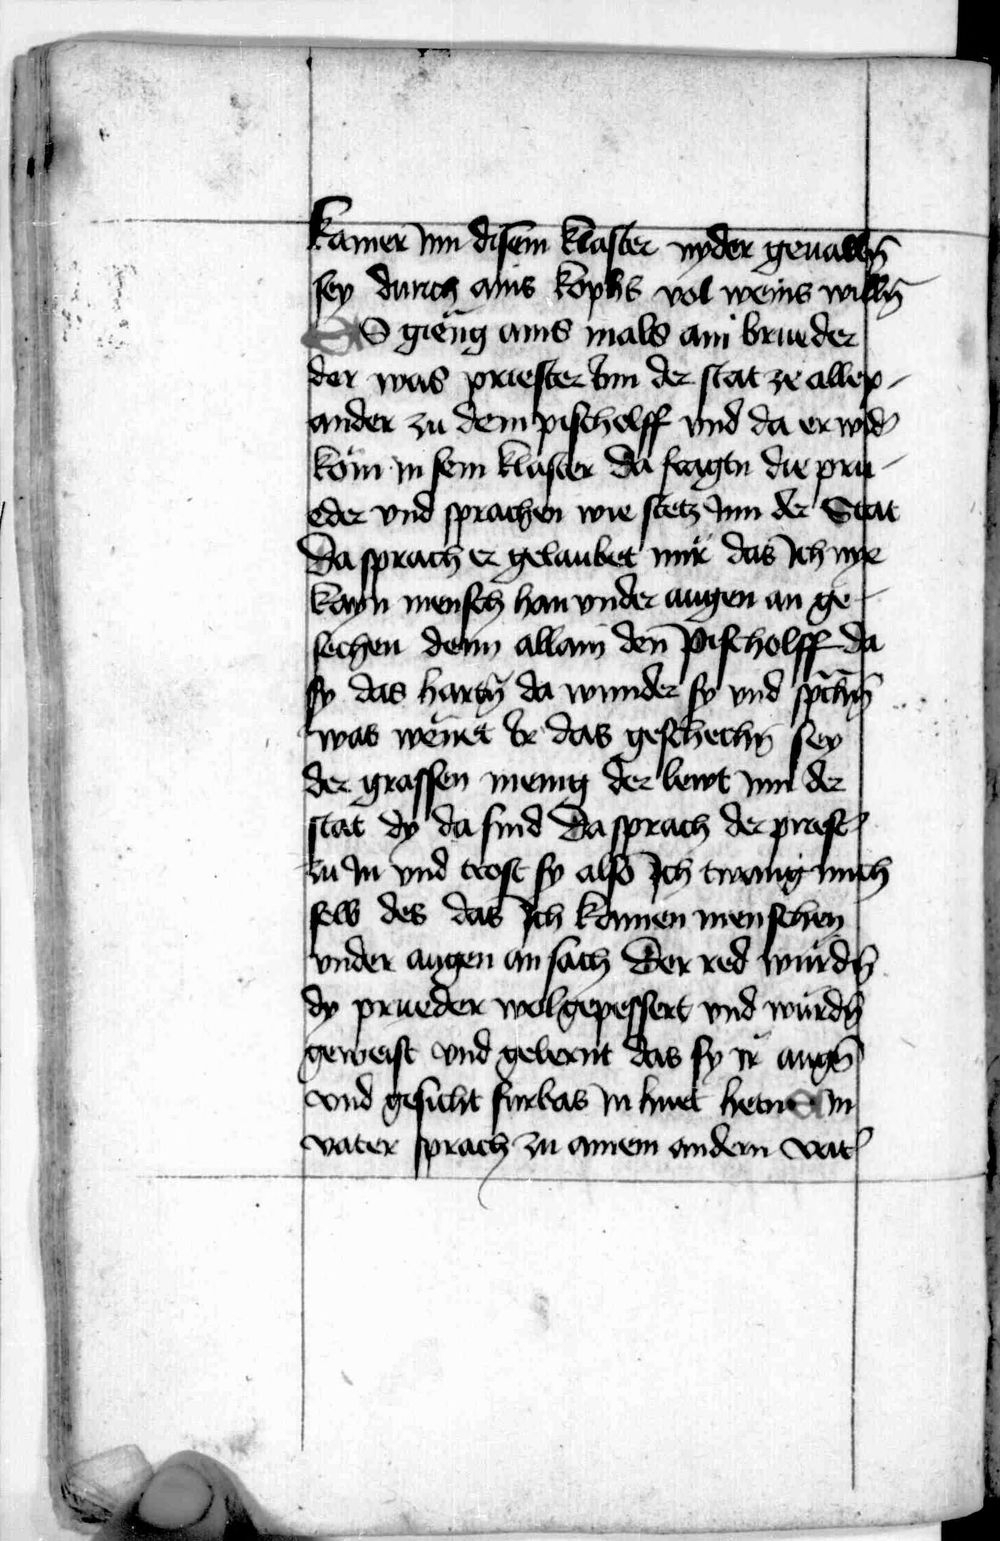 kamer Inn disem klaster nyder geuallen̄
sey durch ains kophs vol weins willn̄
ES gieng ains mals ain brueder
der was priester Inn der stat ze allex-
ander zu dem pischolff vnd da er wid͛
kom̄ in sein klaster da fragtn die pru-
eder vnd sprachen wie stetz Inn der Stat
Da sprach er gelaubet mir das Ich nye
kayn mensch han vnder augen an ge-
sechen denn allain den Pischolff da
sy das hartn̄ da wunder sy vnd sp̄chn̄
was wenet Ir das geschechn̄ sey
der grassen menig der lewt Inn der
stat dy da sind Da sprach der priest͛
zu In vnd trost sy also Ich twang mich
selb des das Ich kainen menschen
vnder augen an sach Der red wurdn̄
dy prueder wol gepessert vnd wurdn̄
geweist vnd gelernt das sy ir augn̄
vnd gesicht furbas in huet hetn Ain
vater sprach zu ainem andern vat͛